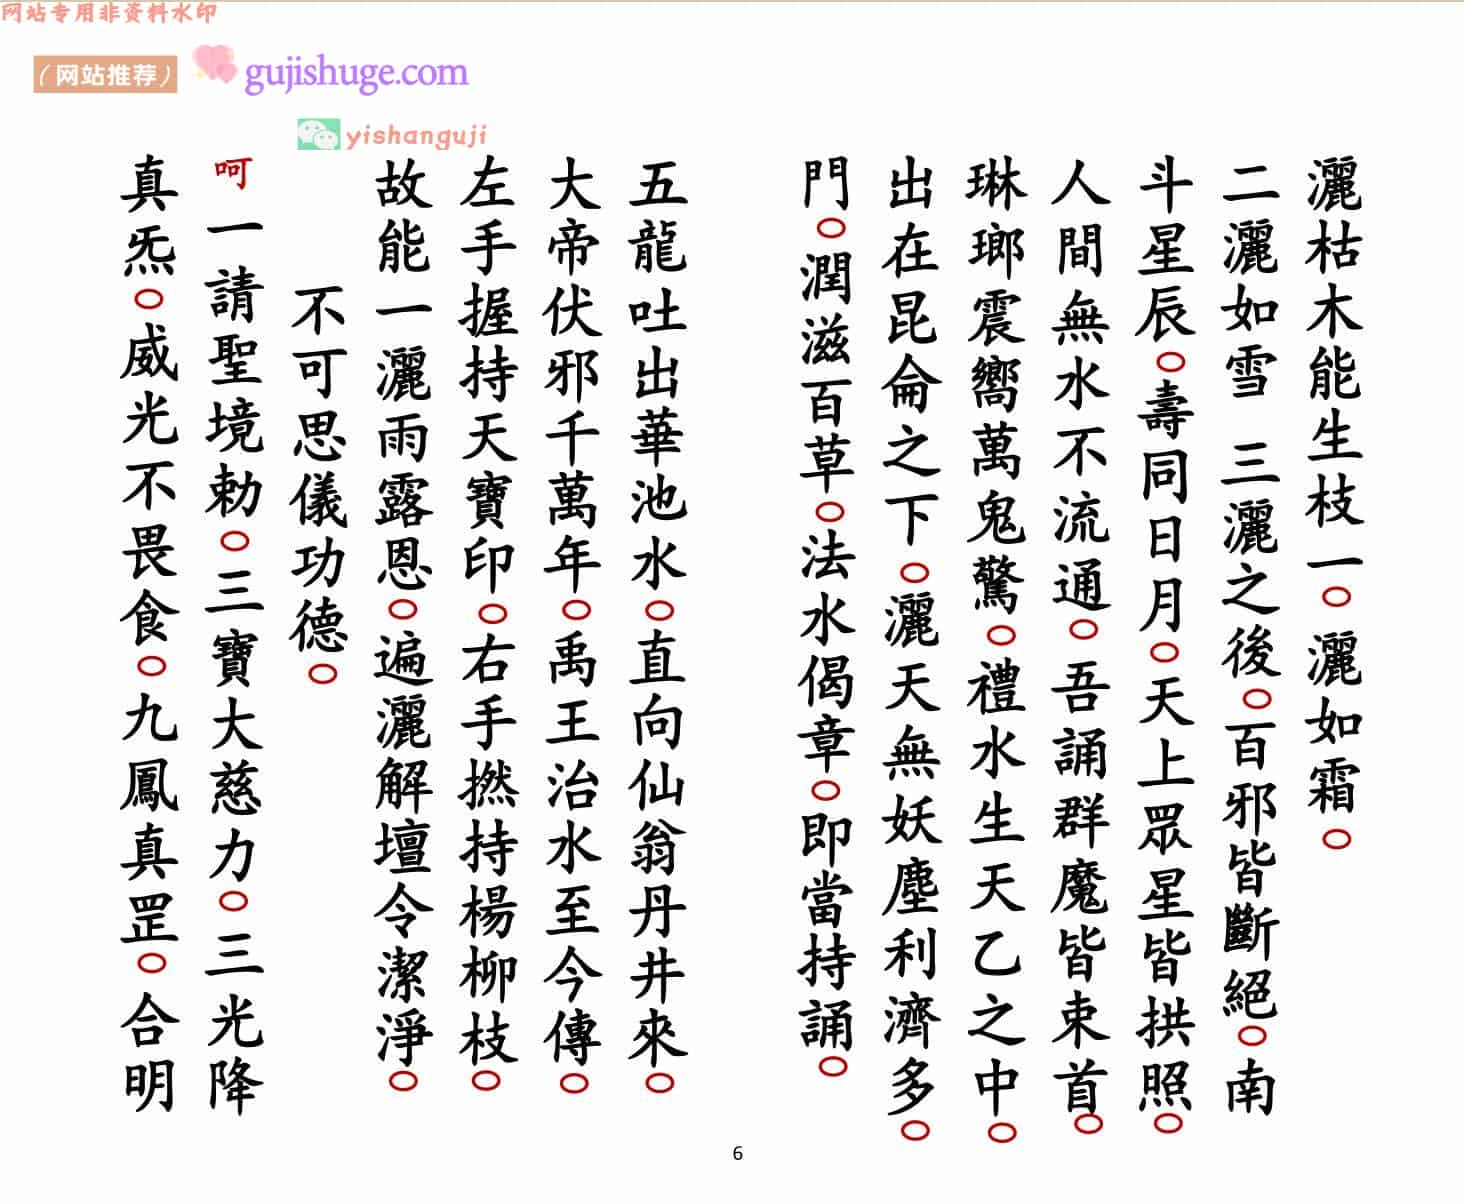 网站专用非资料水印
（网站推荐） gujishuge.com
yishanguji
灑枯木能生枝一○灑如霜○
二灑如雪 三灑之後○百邪皆斷絕○南
斗星辰○壽同日月○天上眾星皆拱照○
人間無水不流通○吾誦群魔皆束首○
琳瑯震嚮萬鬼驚○禮水生天乙之中○
出在昆侖之下○灑天無妖塵利濟多○
門○潤滋百草○法水偈章○即當持誦○
五龍吐出華池水○直向仙翁丹井來○
大帝伏邪千萬年○禹王治水至今傳○
左手握持天寶印○右手撚持楊柳枝○
故能一灑雨露恩○遍灑解壇令潔淨○
不可思儀功德○
呵一請聖境勅○三寶大慈力○三光降
真炁○威光不畏食○九鳳真罡○合明
6